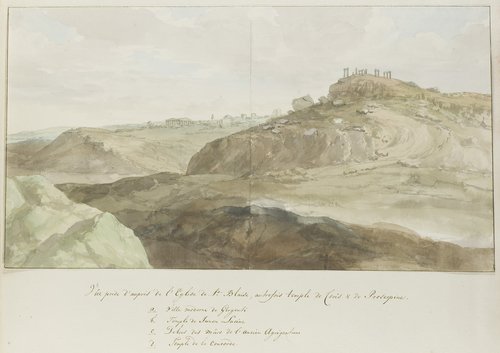 Vue prise d'auprès de l'Eglise de St. Blaise, autrefois temple de Cerès & de Proserpine.
a. Ville moderne de Girgenti
b. Temple de Junon Lucine
c. Debris des murs de l'ancien Agrigentum
d. Temple de la Concorde